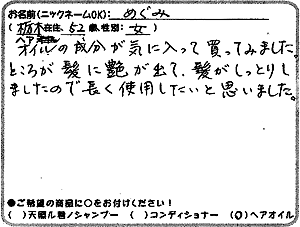 お名前(ニックネームOK): めぐみ
(栃木在住、52歳、性別: 女)
ヘア
オイルの成分が気に入って買ってみました。
ところが髪に艶が出て、髪がしっとりし
ましたので長く使用したいと思いました。
●ご希望の商品に○をお付けください!
( )天照ル君ノシャンプー ( )コンディショナー (○)ヘアオイル